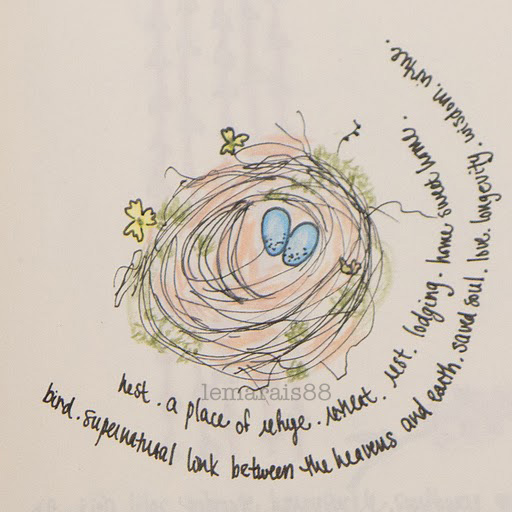 nest. a place of refuge. retreat. rest. lodging. home sweet home.
bird. supernatural link between the heavens and earth. saved soul. love. longevity. wisdom. virtue.
lemarais88